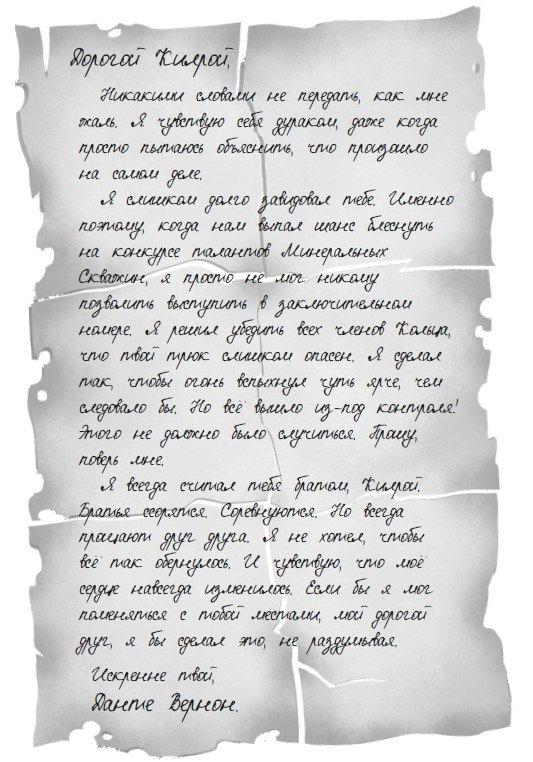 Дорогой Килрой,
Никакими словами не передать, как мне
жаль. Я чувствую себя дураком, даже когда
просто пытаюсь объяснить, что произошло
на самом деле.
Я слишком долго завидовал тебе. Именно
поэтому, когда нам выпал шанс блеснуть
на конкурсе талантов Минеральных
Скважин, я просто не мог никому
позволить выступить в заключительном
номере. Я решил убедить всех членов Кольца,
что твой трюк слишком опасен. Я сделал
так, чтобы огонь вспыхнул чуть ярче, чем
следовало бы. Но всё вышло из-под контроля!
Этого не должно было случиться. Прошу,
поверь мне.
Я всегда считал тебя братом, Килрой.
Братья ссорятся. Соревнуются. Но всегда
прощают друг друга. Я не хотел, чтобы
всё так обернулось. И чувствую, что моё
сердце навсегда изменилось. Если бы я мог
поменяться с тобой местами, мой дорогой
друг, я бы сделал это, не раздумывая.
Искренне твой,
Данте Вернон.